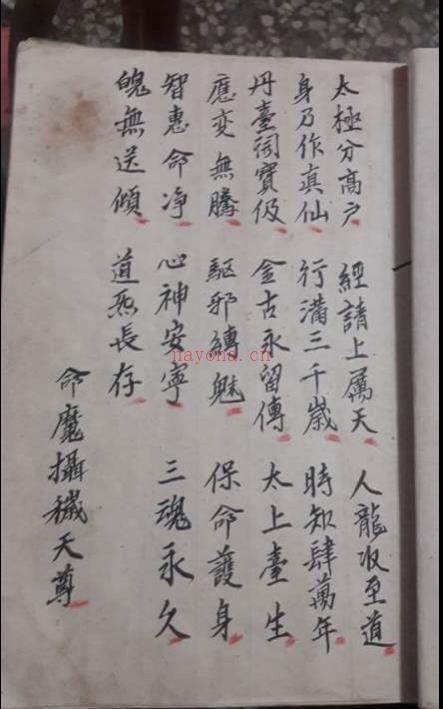 太極分高户 經請上屬天 人龍収至道
身乃作真仙 行满三千歲 時知肆萬年
丹臺祠寶伋 金古永留傳 太上臺生
應变無騰 駆邪縛魅 保命護身
智惠命净 心神安寧 三魂永久
魄無送傾 道炁長存
命魔攝穢天尊
nayona.cn